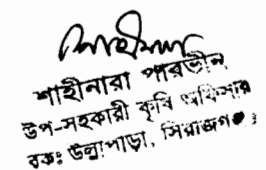 শাহীনারা পারভীন
উপ-সহকারী কৃষি অফিসার
ব্লকঃ উল্লাপাড়া, সিরাজগঞ্জ।